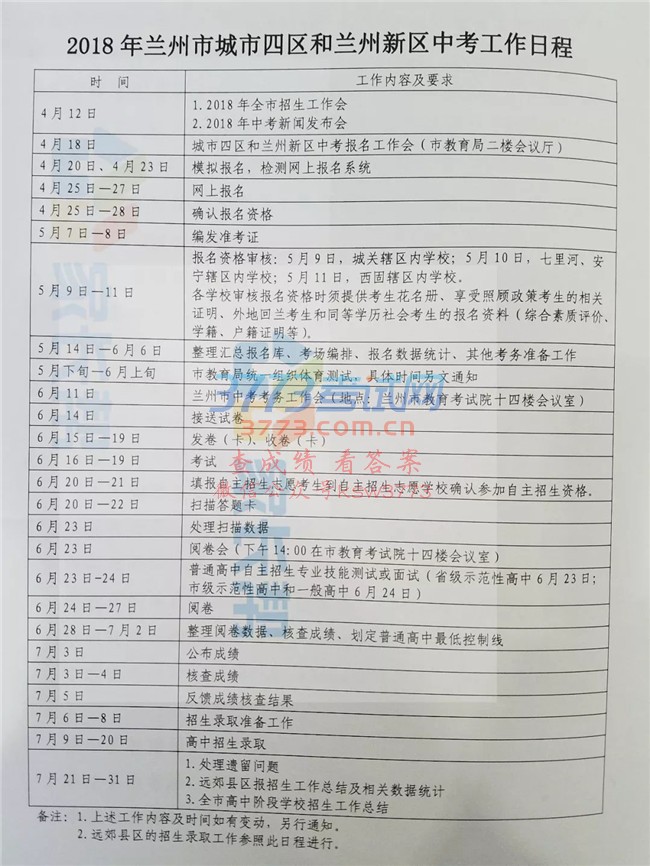 2018年兰州市城市四区和兰州新区中考工作日程
时 间 工作内容及要求
4月12日 1.2018年全市招生工作会
2.2018年中考新闻发布会
4月18日 城市四区和兰州新区中考报名工作会（市教育局二楼会议厅）
4月20日、4月23日 模拟报名，检测网上报名系统
4月25日—27日 网上报名
4月25日—28日 确认报名资格
5月7日—8日 编发准考证
5月9日—11日 报名资格审核：5月9日，城关辖区内学校；5月10日，七里河、安
宁辖区内学校；5月11日，西固辖区内学校。
各学校审核报名资格时须提供考生花名册、享受照顾政策考生的相关
证明、外地回兰考生和同等学历社会考生的报名资料（综合素质评价、
学籍、户籍证明等）。
5月14日—6月6日 整理汇总报名库、考场编排、报名数据统计、其他考务准备工作
5月下旬—6月上旬 市教育局统一组织体育测试，具体时间另文通知
6月11日 兰州市中考考务工作会（地点：兰州市教育考试院十四楼会议室）
6月14日 接送试卷
6月15日—19日 发卷（卡）、收卷（卡）
6月16日—19日 考试
6月20日—21日 填报自主招生志愿考生到自主招生志愿学校确认参加自主招生资格。
6月20日—22日 扫描答题卡
6月23日 处理扫描数据
6月23日 阅卷会（下午14:00在市教育考试院十四楼会议室）
6月23日-24日 普通高中自主招生专业技能测试或面试（省级示范性高中6月23日；
市级示范性高中和一般高中6月24日）
6月24日—27日 阅卷
6月28日—7月2日 整理阅卷数据、核查成绩、划定普通高中最低控制线
7月3日 公布成绩
7月3日—4日 核查成绩
7月5日 反馈成绩核查结果
7月6日—8日 招生录取准备工作
7月9日—20日 高中招生录取
7月21日—31日 1.处理遗留问题
2.远郊县区报招生工作总结及相关数据统计
3.全市高中阶段学校招生工作总结
备注：1.上述工作内容及时间如有变动，另行通知。
2.远郊县区的招生录取工作参照此日程进行。
3773考试网
3773.com.cn
查成绩 看答案